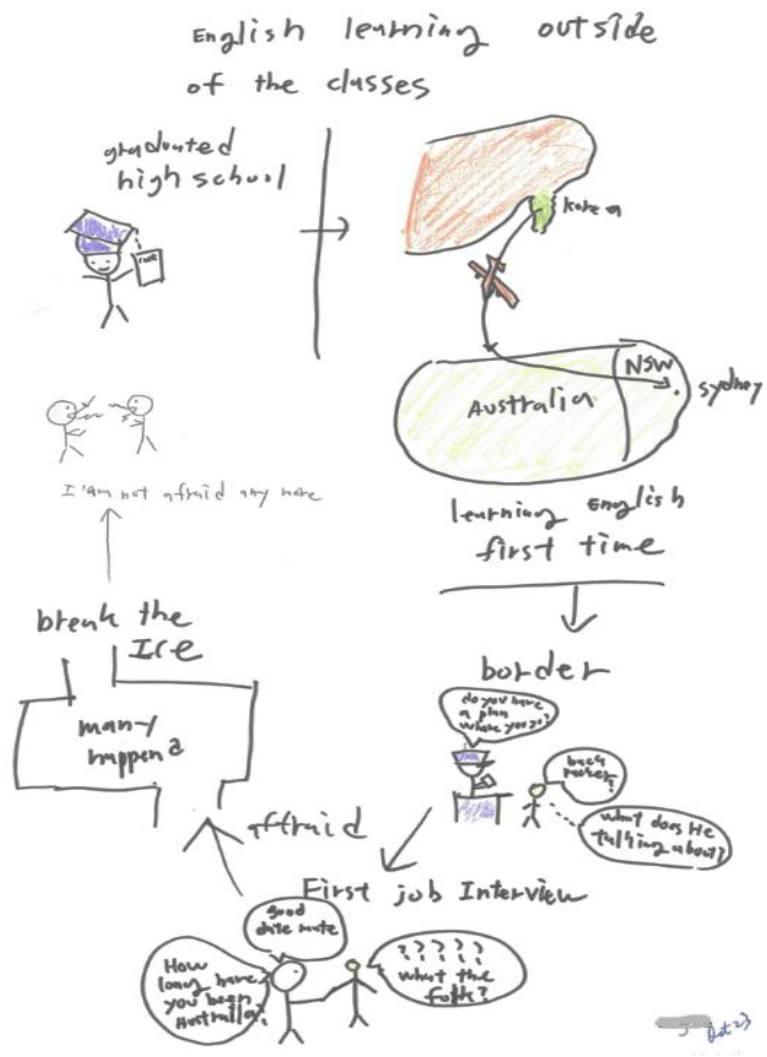 English learning outside
of the classes
graduated
high school
Korea
NSW
Australia
sydney
learning English
first time
border
do you have
a plan
where you go?
back
packer?
what does He
talking about?
First job Interview
good
dite mate
How
long have
you been
Australia?
? ? ? ? ?
what the
affraid
many
happend
break the
Ice
I'am not afraid any more